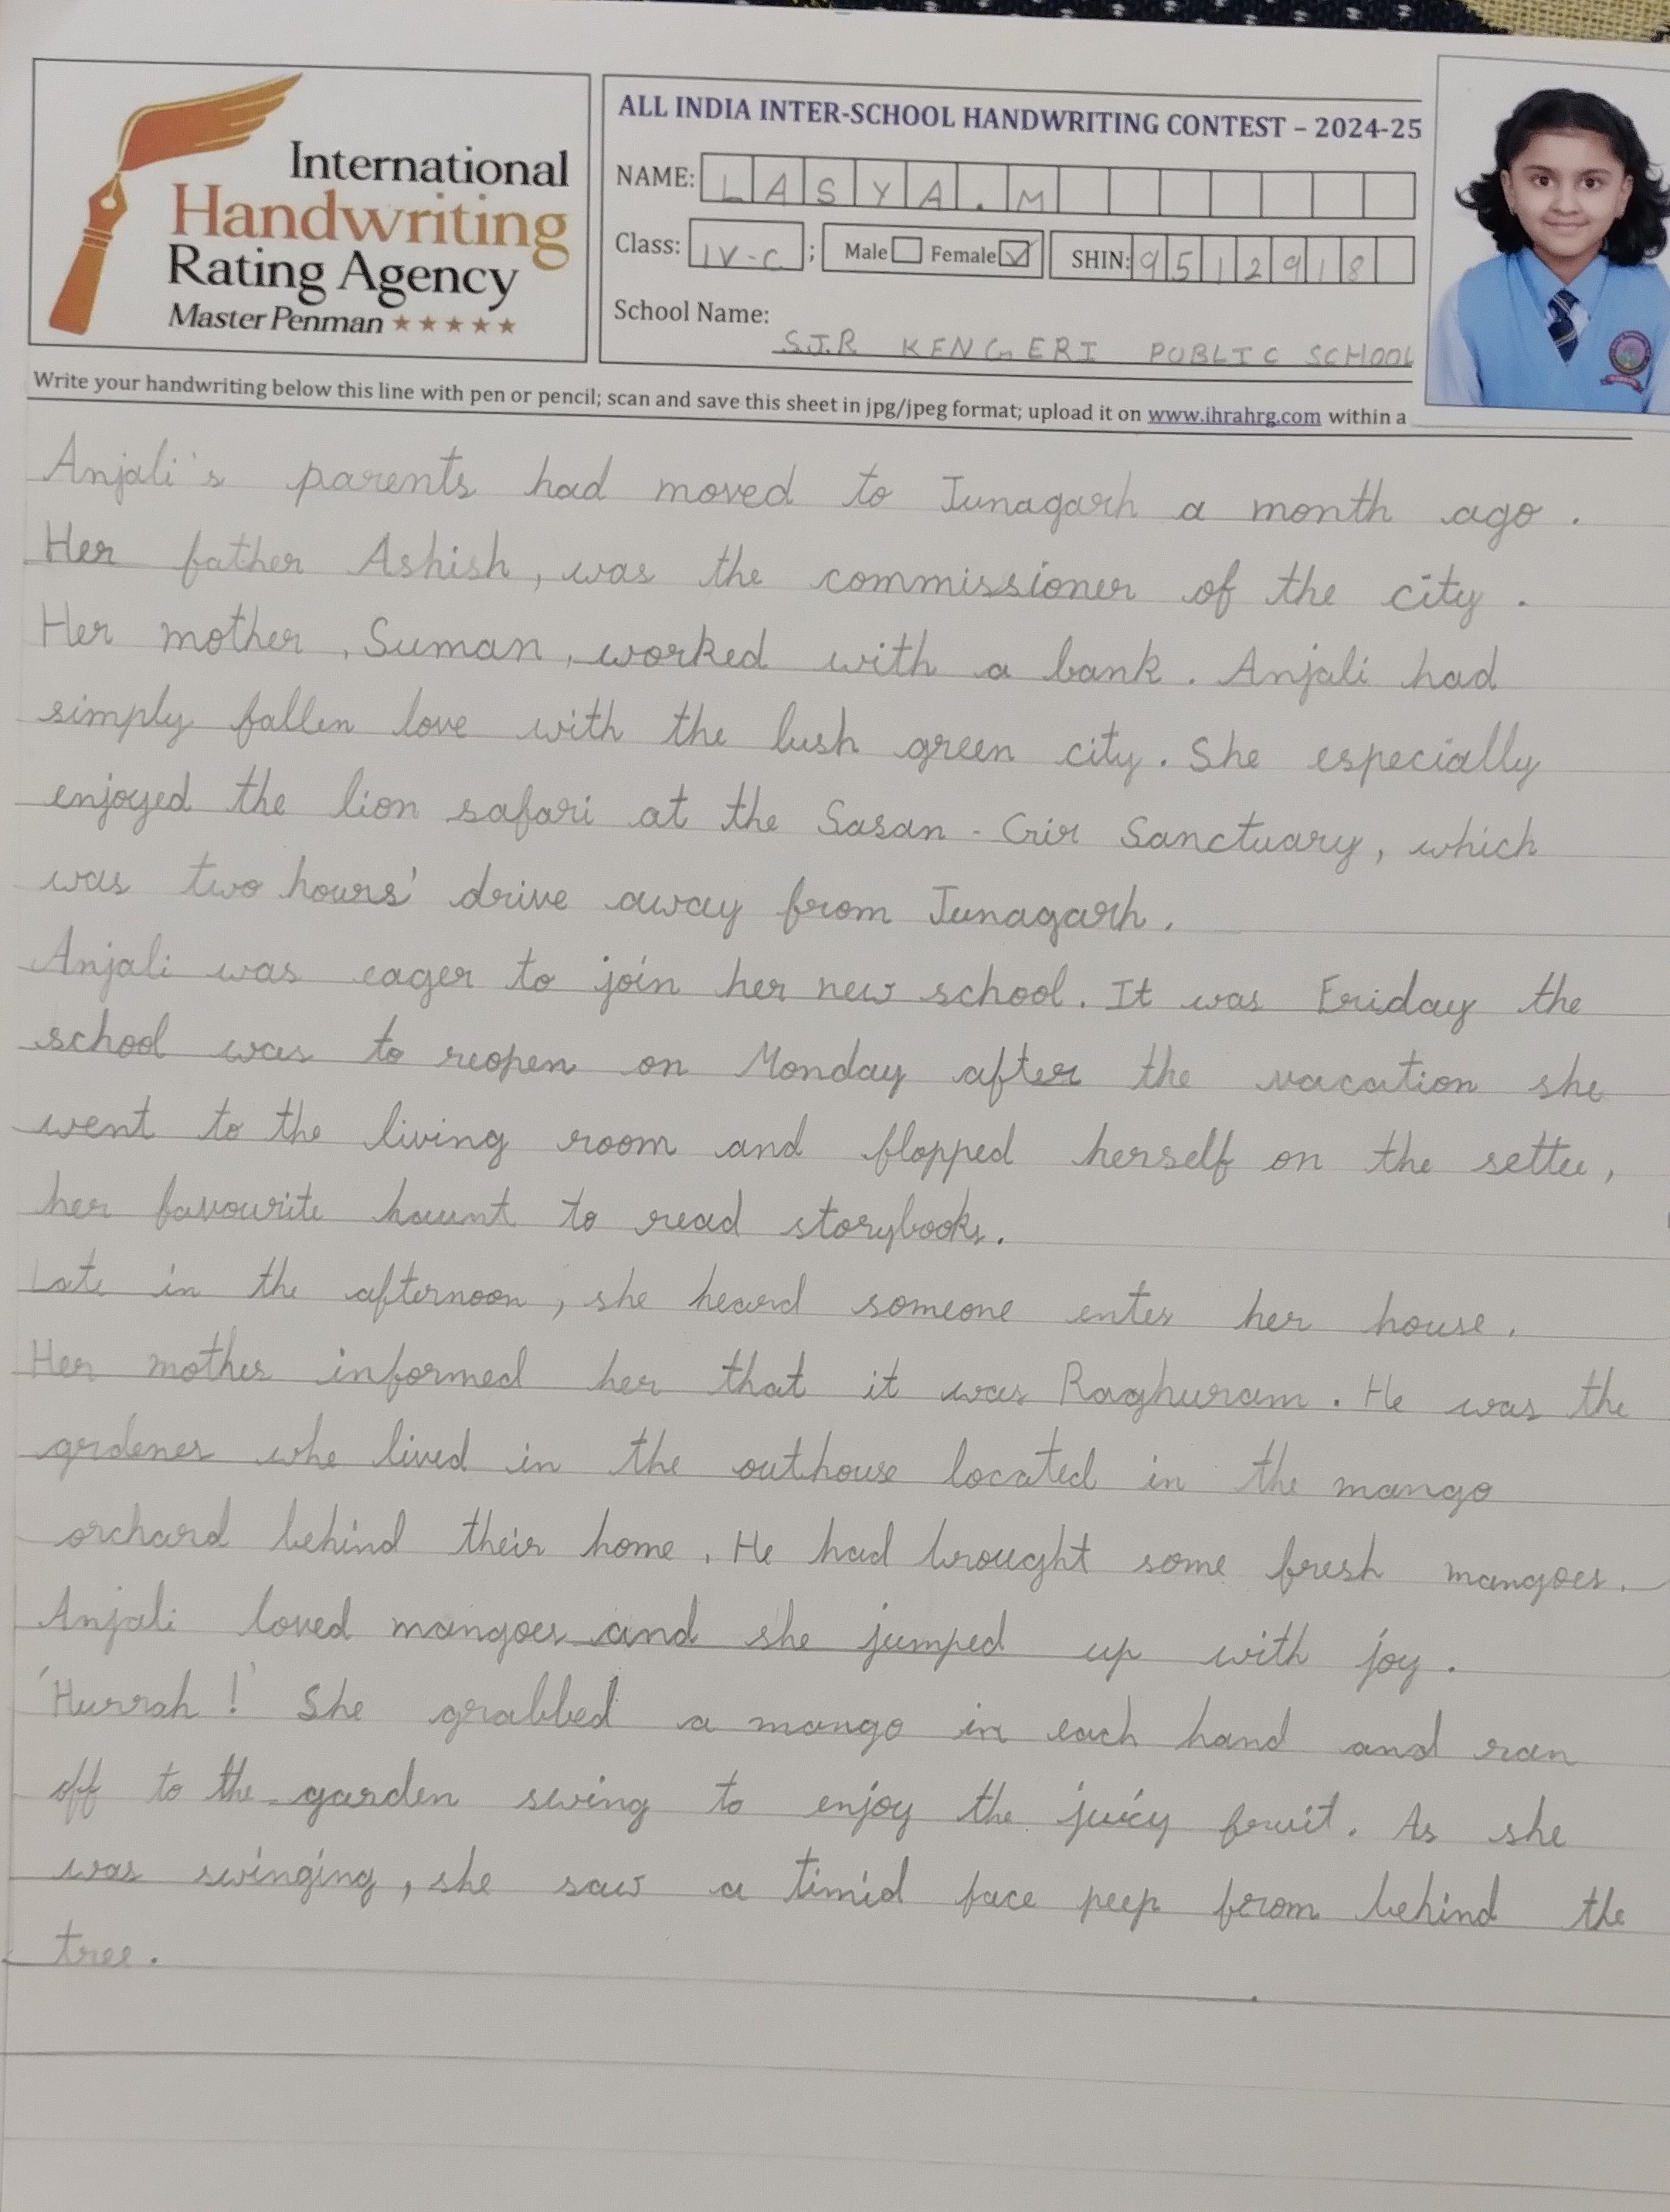 International
Handwriting
Rating Agency
Master Penman
ALL INDIA INTER-SCHOOL HANDWRITING CONTEST – 2024-25
NAME: LASYA.M
Class: IV-C ; Male Female SHIN: 9512918
School Name:
SJR KENGERI PUBLIC SCHOOL
Write your handwriting below this line with pen or pencil; scan and save this sheet in jpg/jpeg format; upload it on www.ihrahrg.com within a
Anjali's parents had moved to Junagarh a month ago.
Her father Ashish, was the commissioner of the city.
Her mother, Suman, worked with a bank. Anjali had
simply fallen love with the lush green city. She especially
enjoyed the lion safari at the Sasan-Grir Sanctuary, which
was two hours' drive away from Junagarh.
Anjali was eager to join her new school. It was Friday the
school was to reopen on Monday after the vacation she
went to the living room and flopped herself on the settee,
her favourite haunt to read storybooks.
Late in the afternoon, she heard someone enter her house.
Her mother informed her that it was Raghuram. He was the
grdener who lived in the outhouse located in the mango
orchard behind their home. He had brought some fresh mangoes.
Anjali loved mangoes and she jumped up with joy.
'Hurrah!' She grabbed a mango in each hand and ran
off to the garden swing to enjoy the juicy fruit. As she
was swinging, she saw a timid face peep from behind the
tree.